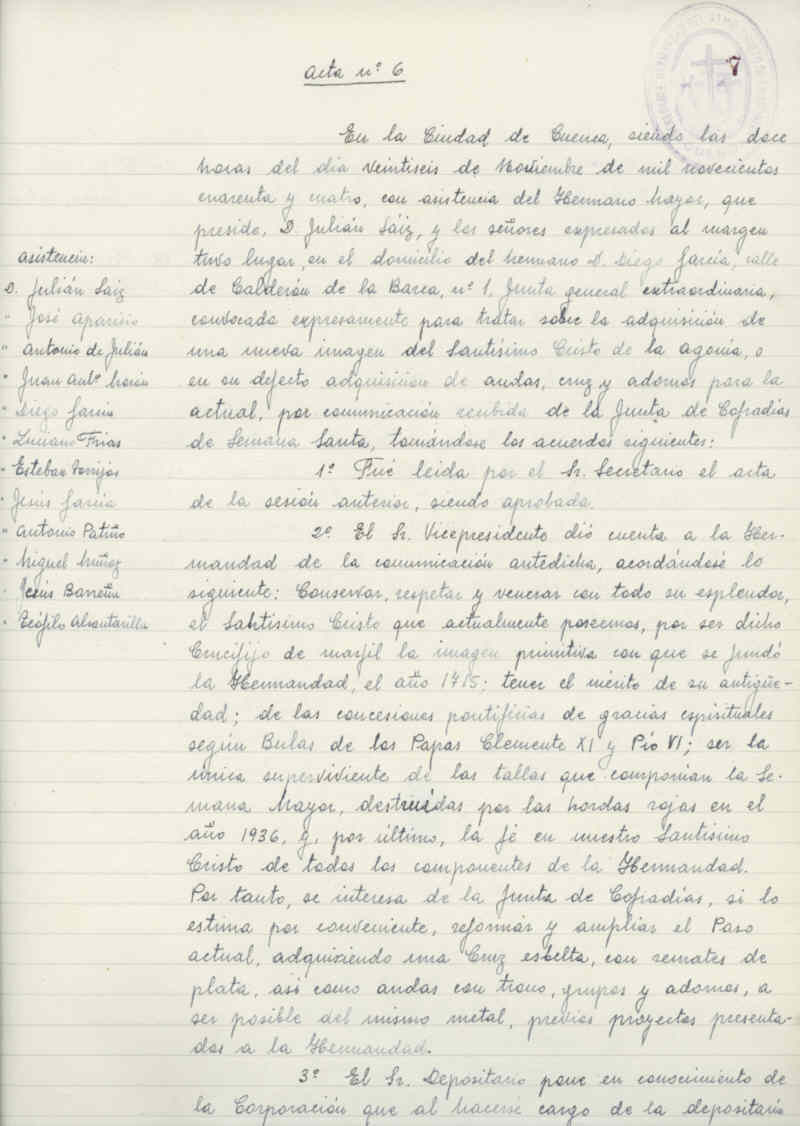 Acta nº 6
7
En la Ciudad de Cuenca, siendo las doce
horas del dia veintiseis de Noviembre de mil novecientos
cuarenta y cuatro, con asistencia del Hermano Mayor, que
preside, D. Julián Sáiz, y los señores expresados al margen
tuvo lugar, en el domicilio del hermano D. Diego García, calle
de Calderón de la Barca, nº 1, Junta general extraordinaria,
convocada expresamente para tratar sobre la adquisición de
una nueva imagen del Santísimo Cristo de la agonía, o
en su defecto adquisición de andas, cruz y adornos para la
actual, por comunicación recibida de la Junta de Cofradías
de Semana Santa, tomándose los acuerdos siguientes:
1º Fué leida por el Sr. Secretario el acta
de la sesión anterior, siendo aprobada.
2º El Sr. Vicepresidente dió cuenta a la Her-
mandad de la comunicación antedicha, acordándose lo
siguiente: Conservar, respetar y venerar con todo su esplendor,
el Santísimo Cristo que actualmente poseemos, por ser dicho
Crucifijo de marfil la imagen primitiva con que se fundó
la Hermandad, el año 1715; tener el mérito de su antigüe-
dad; de las concesiones pontificias de gracias espirituales
según Bulas de los Papas Clemente XI y Pío VI; ser la
única superviviente de las tallas que componían la Se-
mana Mayor, destruídas por las hordas rojas en el
año 1936, y, por último, la fé en nuestro Santísimo
Cristo de todos los componentes de la Hermandad.
Por tanto, se interesa de la Junta de Cofradías, si lo
estima por conveniente, reformar y ampliar el Paso
actual, adquiriendo una Cruz esbelta, con remates de
plata, así como andas con trono, grupos y adornos, a
ser posible del mismo metal, previos proyectos presenta-
dos a la Hermandad.
3º El Sr. Depositario pone en conocimiento de
la Corporación que al hacerse cargo de la depositaría
asistencia:
D. Julián Saiz
" José Aparisio
" Antonio de Julián
" Juan Antº
" Diego García
" Luciano Frias
" Esteban Torrijos
" Jesús García
" Antonio Patiño
" Miguel Muñoz
" Jesús
" Teófilo Alcantarilla